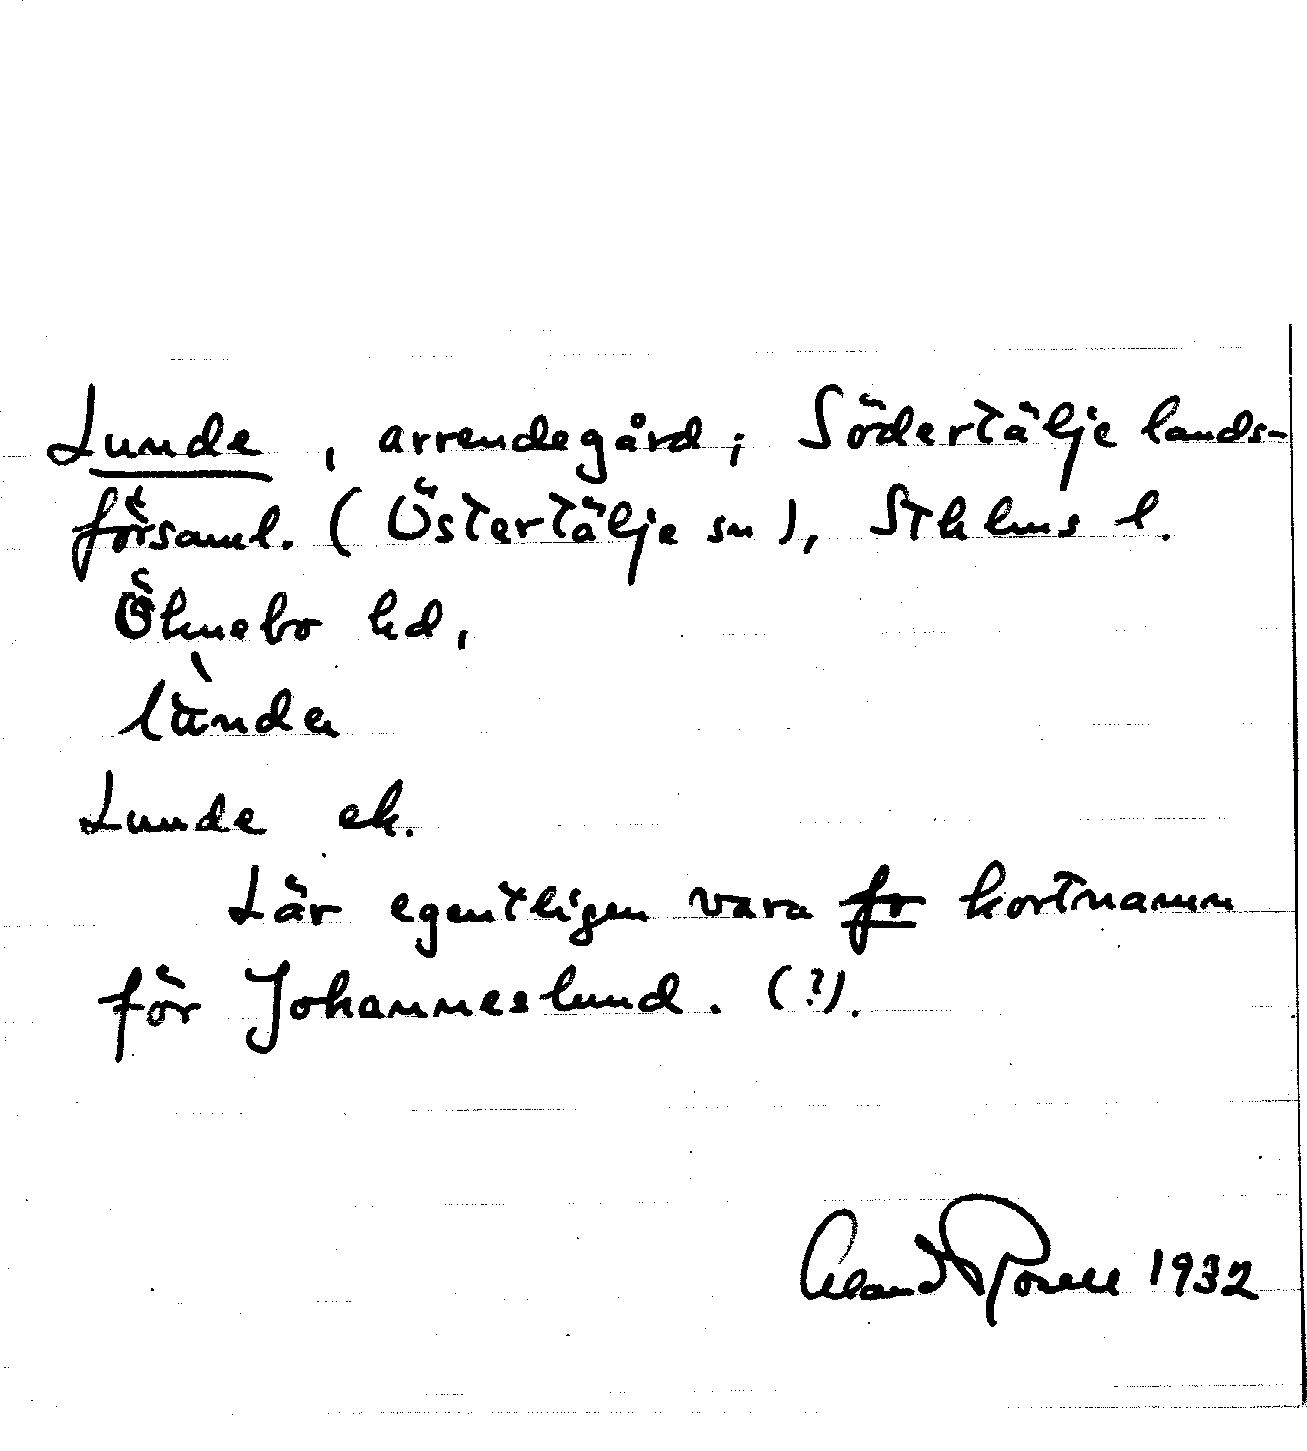 Lunde, arrendegård; Södertälje lands-
församl. (Östertälje sn), Sthlms l.
Öknebo hd,
Lunde ek.
Lär egentligen vara fr kortnamn
för Johanneslund. (?).
1932